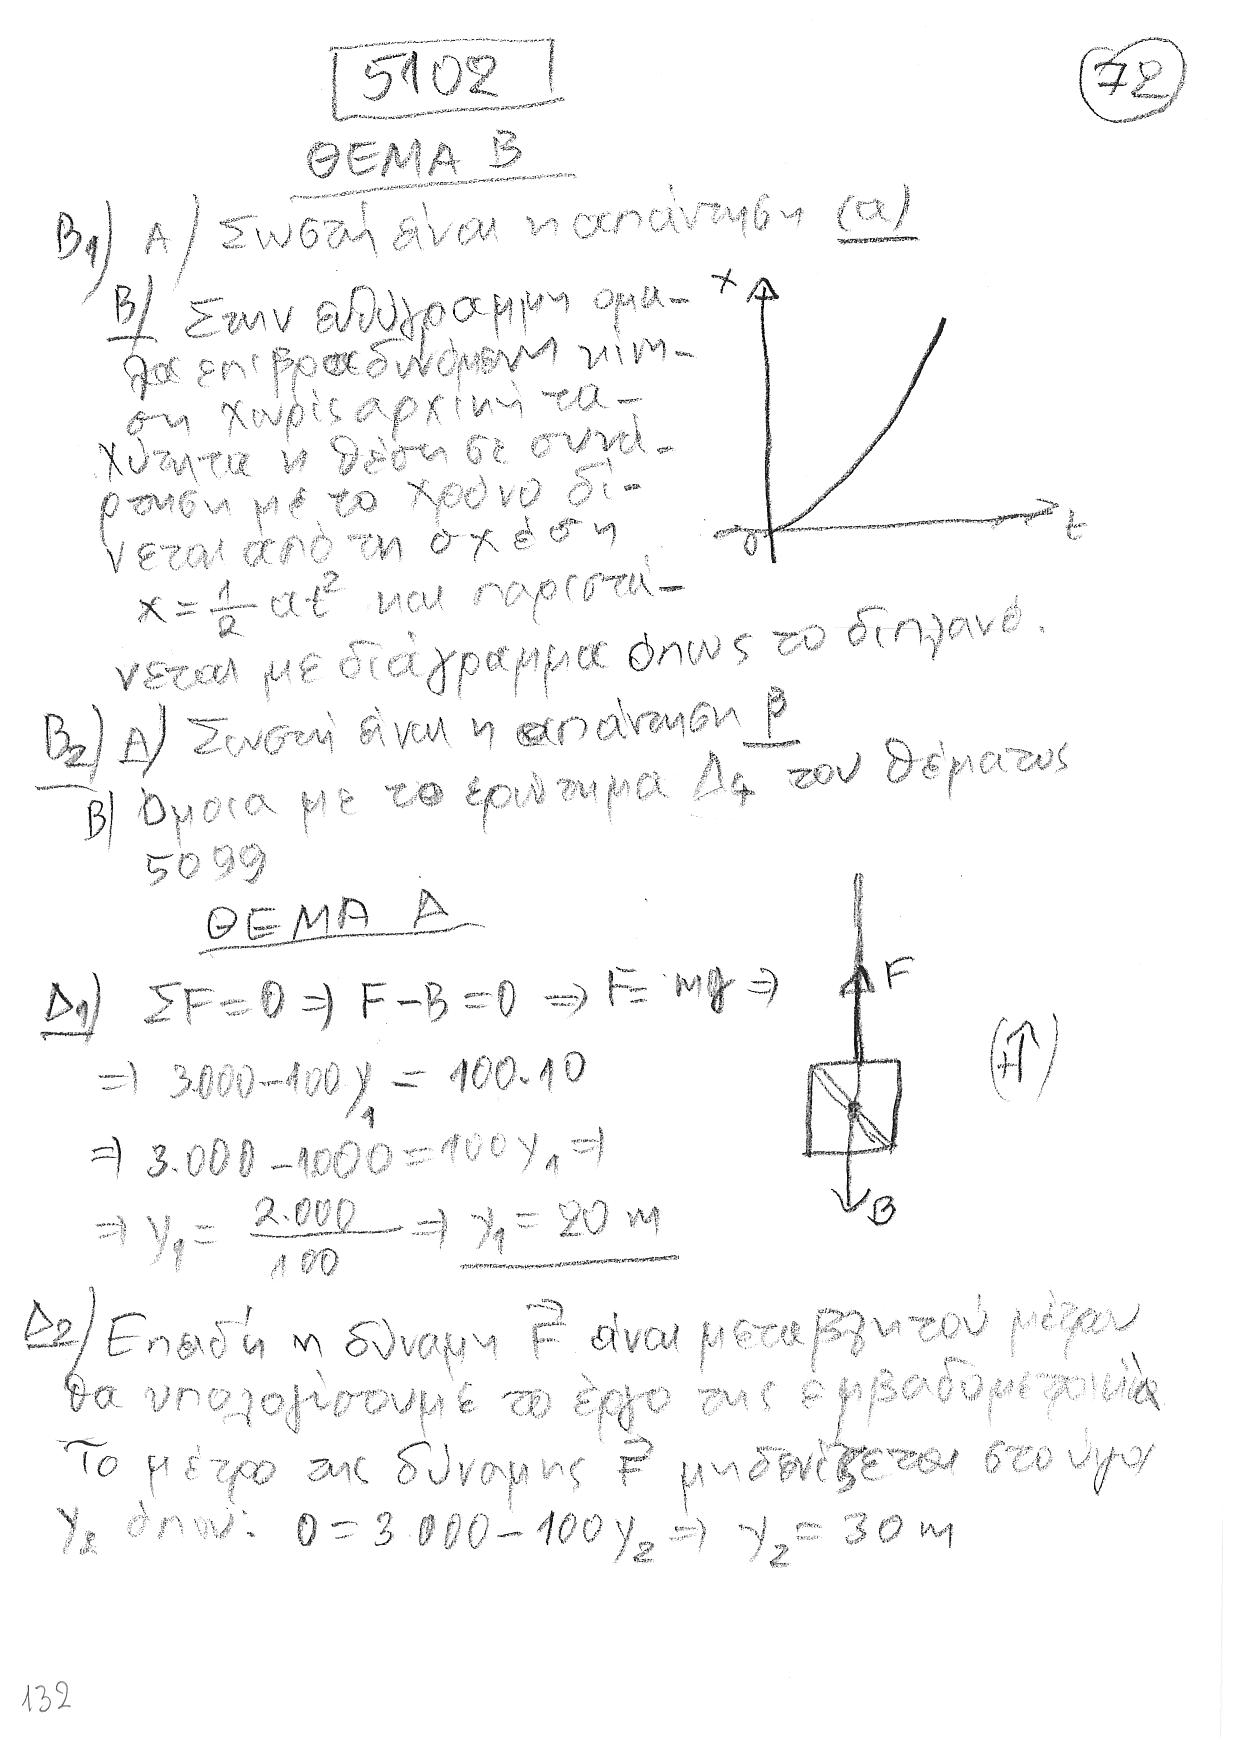 5102
72
ΘΕΜΑ Β
Β1) Α) Σωστή είναι η απάντηση (α)
Β) Στην ευθύγραμμη ομα-
λα επιβραδυνόμενη κίνη-
ση χωρίς αρχική τα-
χύτητα η θέση σε συνά-
ρτηση με το χρόνο δί-
νεται από τη σχέση
x = 1/2 at² και παριστά-
νεται με διάγραμμα όπως το διπλανό.
x
0
t
Β2) Α) Σωστή είναι η απάντηση β
Β) Όμοια με το ερώτημα Δ4 του θέματος
5099
ΘΕΜΑ Δ
Δ1) ΣF = 0 ⇒ F - B = 0 ⇒ F = mg ⇒
⇒ 3.000 - 100 y₁ = 100.10
⇒ 3.000 - 1000 = 100 y₁ ⇒
⇒ y₁ = 2.000/100 ⇒ y₁ = 20 m
F
(+↑)
B
Δ2) Επειδή η δύναμη F⃗ είναι μεταβλητού μέτρου
θα υπολογίσουμε το έργο της εμβαδομετρικά
Το μέτρο της δύναμης F⃗ μηδενίζεται στο ύψος
y₂ όπου: 0 = 3.000 - 100 y₂ ⇒ y₂ = 30 m
132